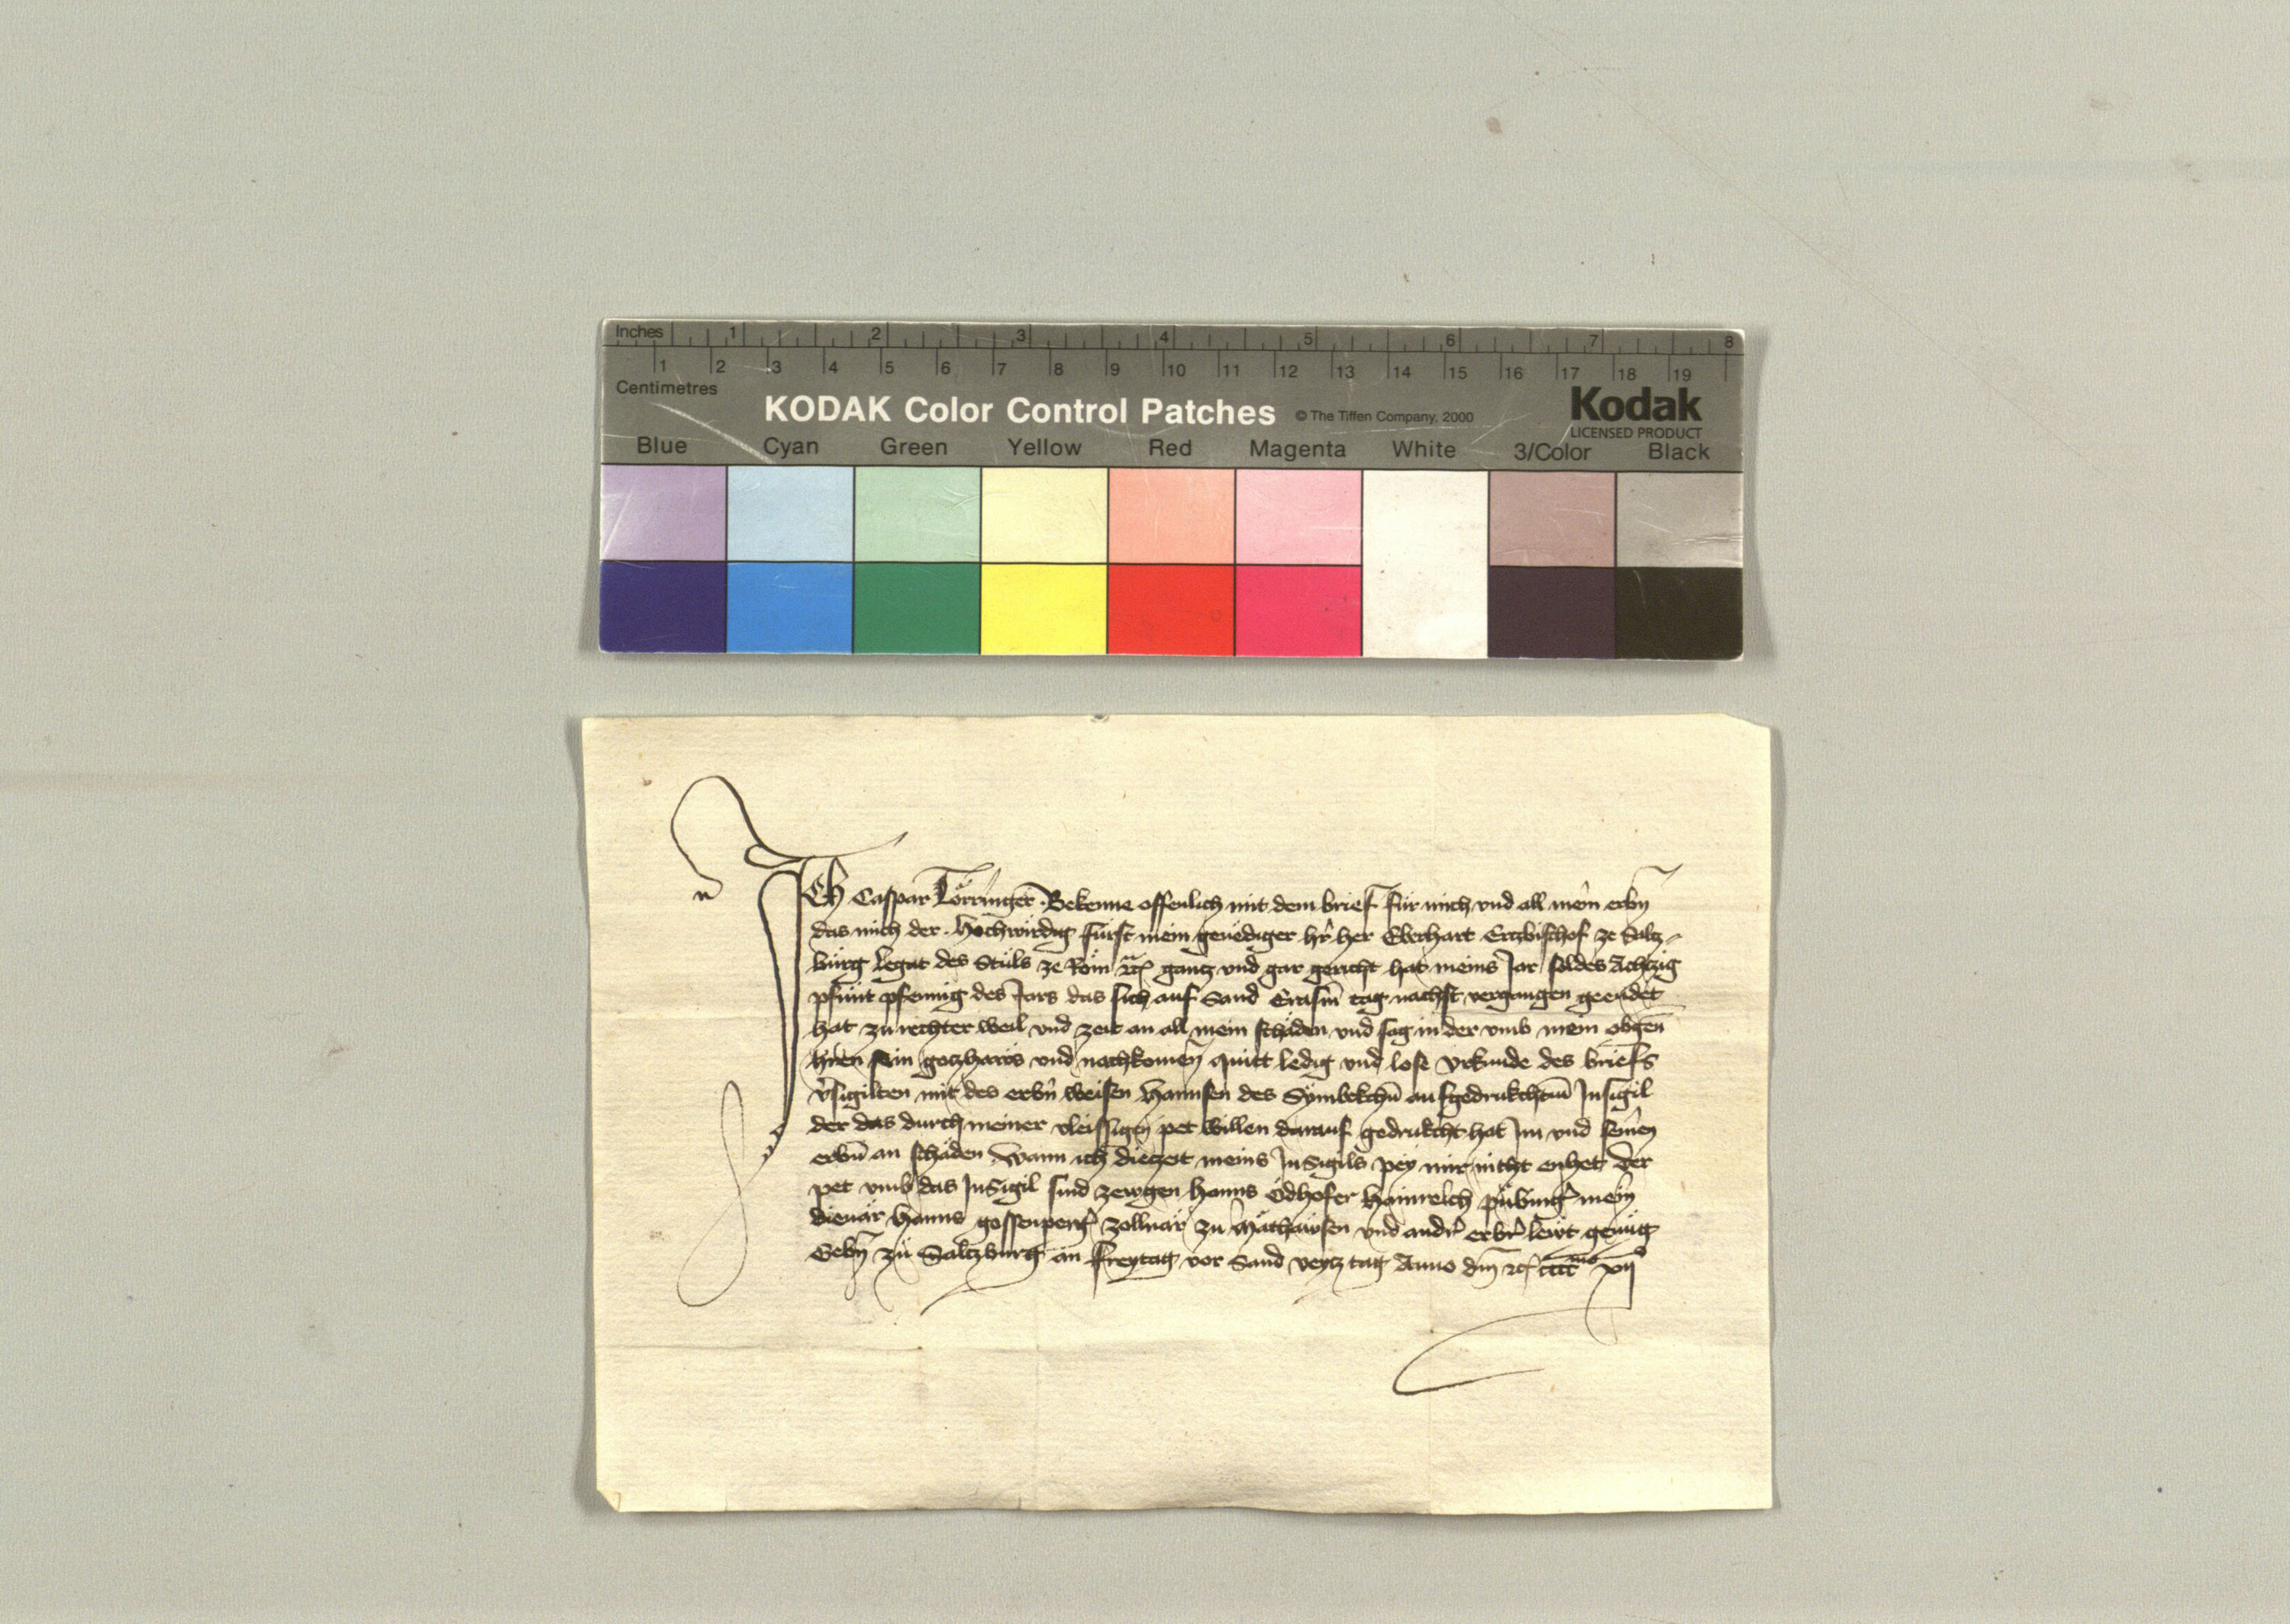 Inches 1 2 3 4 5 6 7 8
1 2 3 4 5 6 7 8 9 10 11 12 13 14 15 16 17 18 19
Centimetres
KODAK Color Control Patches © The Tiffen Company, 2000 Kodak
LICENSED PRODUCT
Blue Cyan Green Yellow Red Magenta White 3/Color Black
Ich Caspar Törringer Bekenne offenlich mit dem brief für mich vnd all mein erbn
das mich der Hochwirdig fürst mein genediger hr her Eberhart Ertzbischof ze Saltz-
burg legat des Stüls ze Rom etc gantz vnd gar gericht hat meins Jar soldes Achtzig
pfunt pfennig des Jars das sich auf Sand Erasm tag nachst vergangen geendet
hat zu rechter weil vnd zeit an all mein schäden vnd sag in der vmb mein obgen
hren sein gotzhaws vnd nachkomen quitt ledig vnd lose vrkunde des briefs
vsigilten mit des erbn weisen Hannsen des aufgedrukchtm Insigil
der das durch meiner vleissigen pet willen darauf gedrukcht hat Im vnd seinen
erbn an schäden wann ich diezeit meins InSigils pey mir nicht enhet der
pet vmb das InSigil sind zewgen Hanns Ödhofer Hainreich mein
dienär Hanns zollnär zu Mathawsen vnd andr erbr lewt genüg
Gebn zu Saltzburg an Freytag vor Sand veytz tag Anno dm etc cccc xii